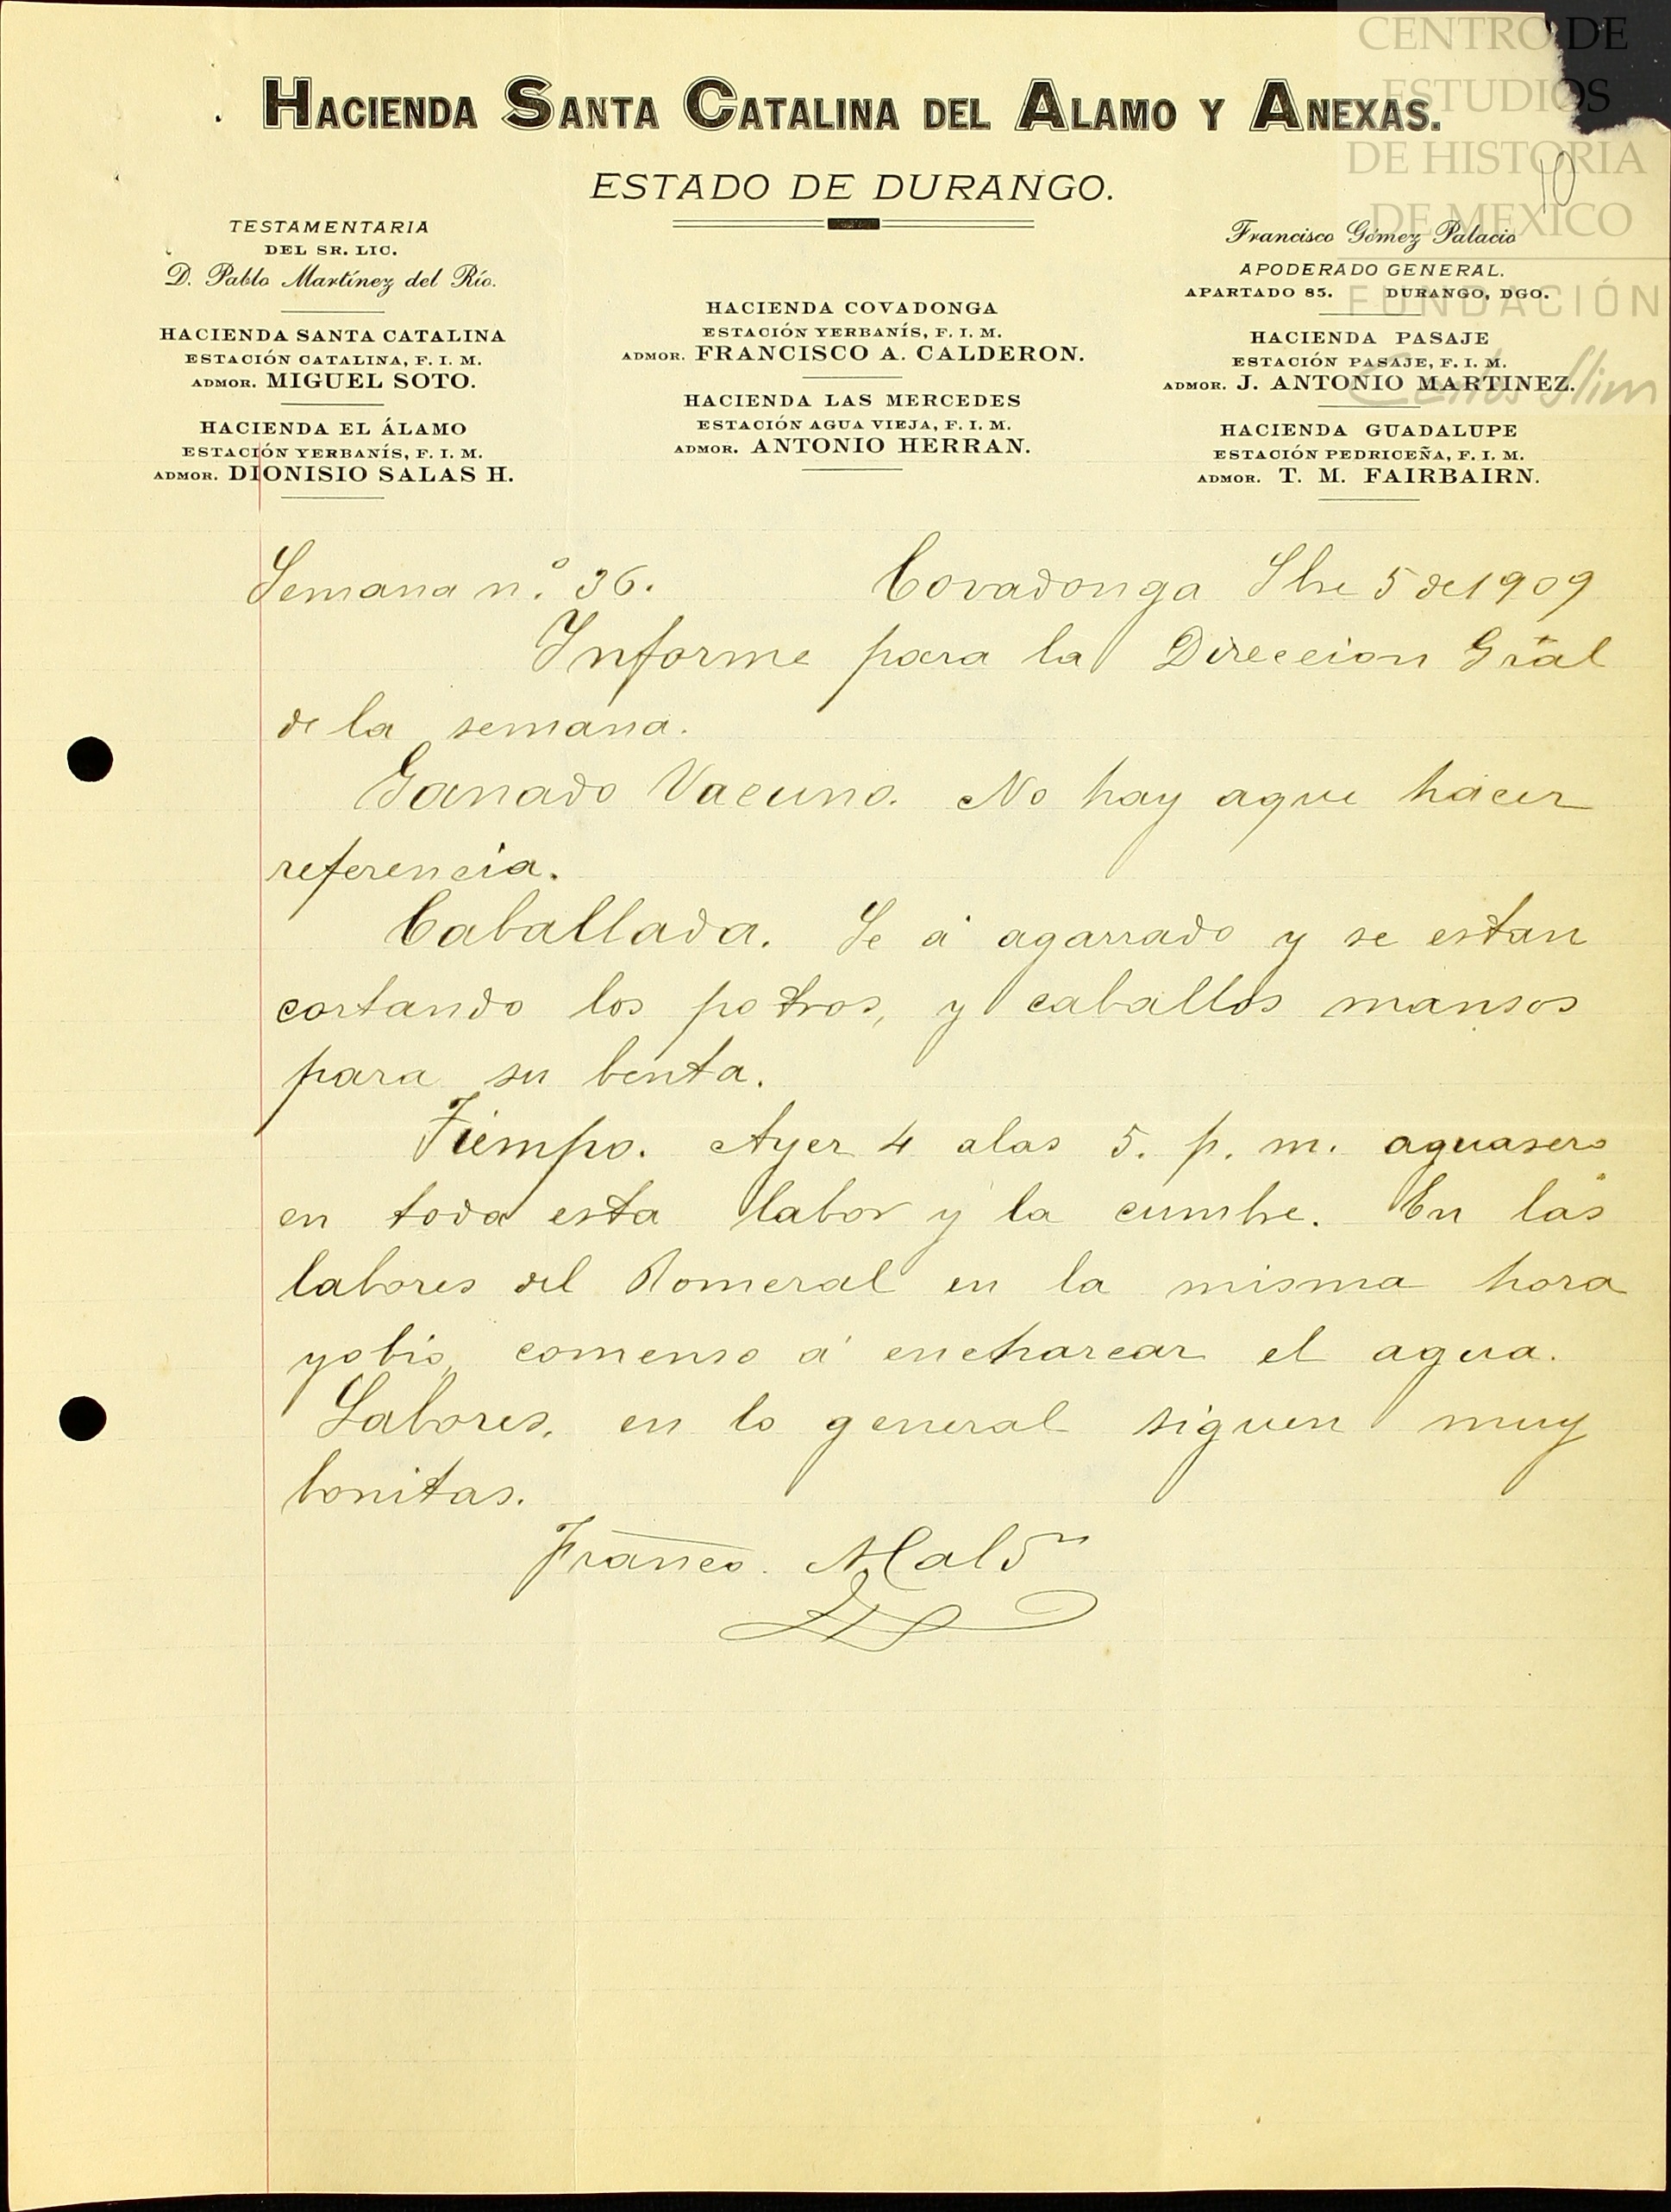 HACIENDA SANTA CATALINA DEL ALAMO Y ANEXAS.
ESTADO DE DURANGO.
TESTAMENTARIA
DEL SR. LIC.
D. Pablo Martínez del Río.
HACIENDA SANTA CATALINA
ESTACIÓN CATALINA, F. I. M.
ADMOR. MIGUEL SOTO.
HACIENDA EL ÁLAMO
ESTACIÓN YERBANÍS, F. I. M.
ADMOR. DIONISIO SALAS H.
HACIENDA COVADONGA
ESTACIÓN YERBANÍS, F. I. M.
ADMOR. FRANCISCO A. CALDERON.
HACIENDA LAS MERCEDES
ESTACIÓN AGUA VIEJA, F. I. M.
ADMOR. ANTONIO HERRAN.
Francisco Gómez Palacio
APODERADO GENERAL.
APARTADO 85. DURANGO, DGO.
HACIENDA PASAJE
ESTACIÓN PASAJE, F. I. M.
ADMOR. J. ANTONIO MARTINEZ.
HACIENDA GUADALUPE
ESTACIÓN PEDRICEÑA, F. I. M.
ADMOR. T. M. FAIRBAIRN.
CENTRO DE
ESTUDIOS
DE HISTORIA
DE MEXICO
FUNDACIÓN
Carlos Slim
10
Semana n.º 36. Covadonga Sbre 5 de 1909
Informe para la Direccion Gral
de la semana.
Ganado Vacuno. No hay aque hacer
referencia.
Caballada. Se á agarrado y se estan
cortando los potros, y caballos mansos
para su benta.
Tiempo. Ayer 4 alas 5. p. m. aguasero
en toda esta labor y la cumbre. En las
labores del Romeral en la misma hora
yobio, comenso á encharcar el agua.
Labores, en lo general siguen muy
bonitas.
Franco. A. Caldn